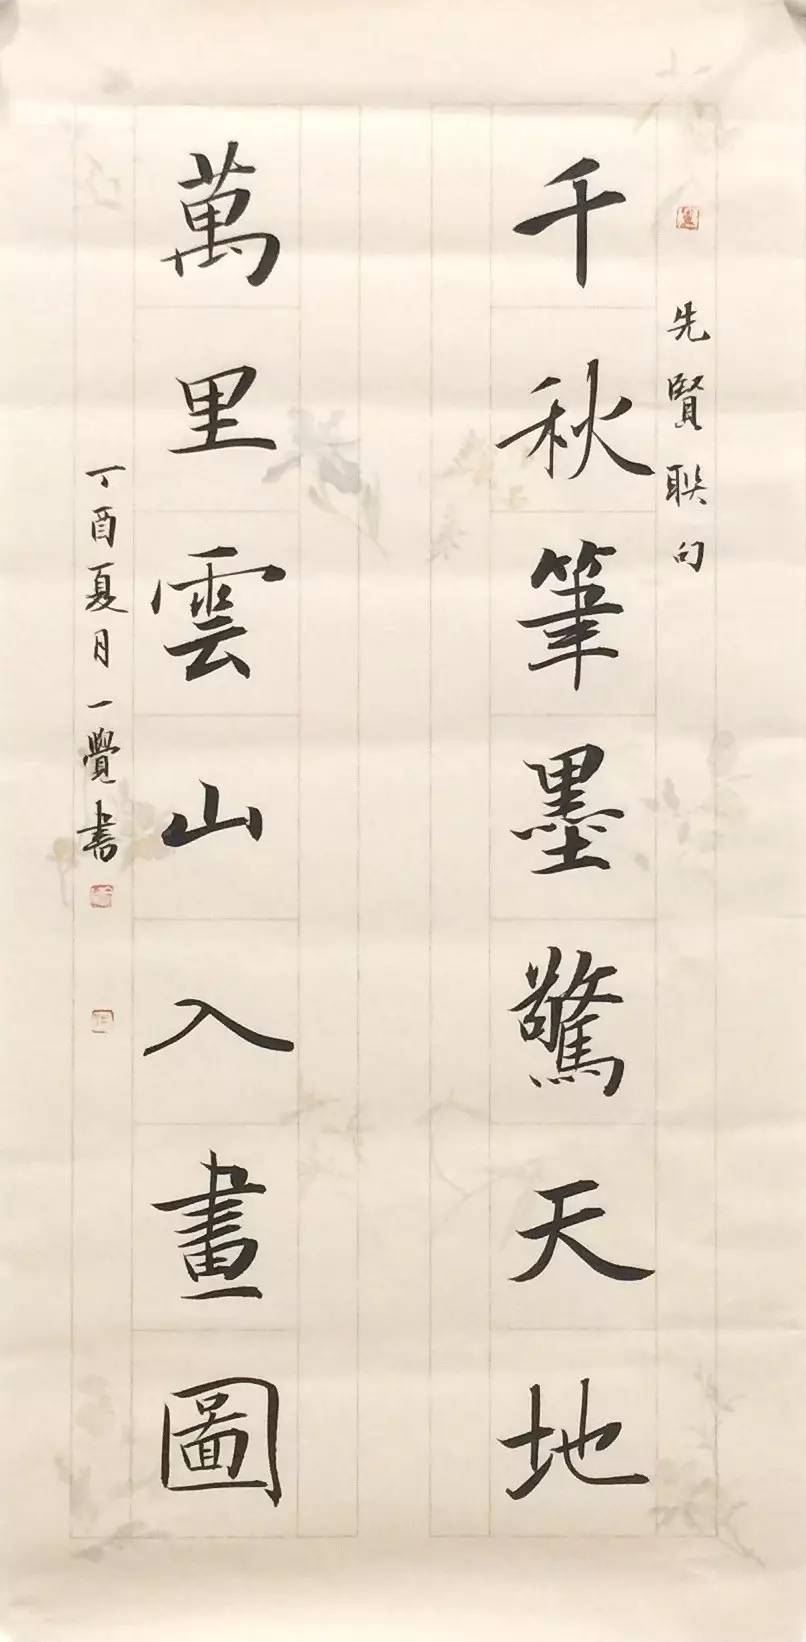 先賢聯句
千秋筆墨驚天地
萬里雲山入畫圖
丁酉夏月一覺書